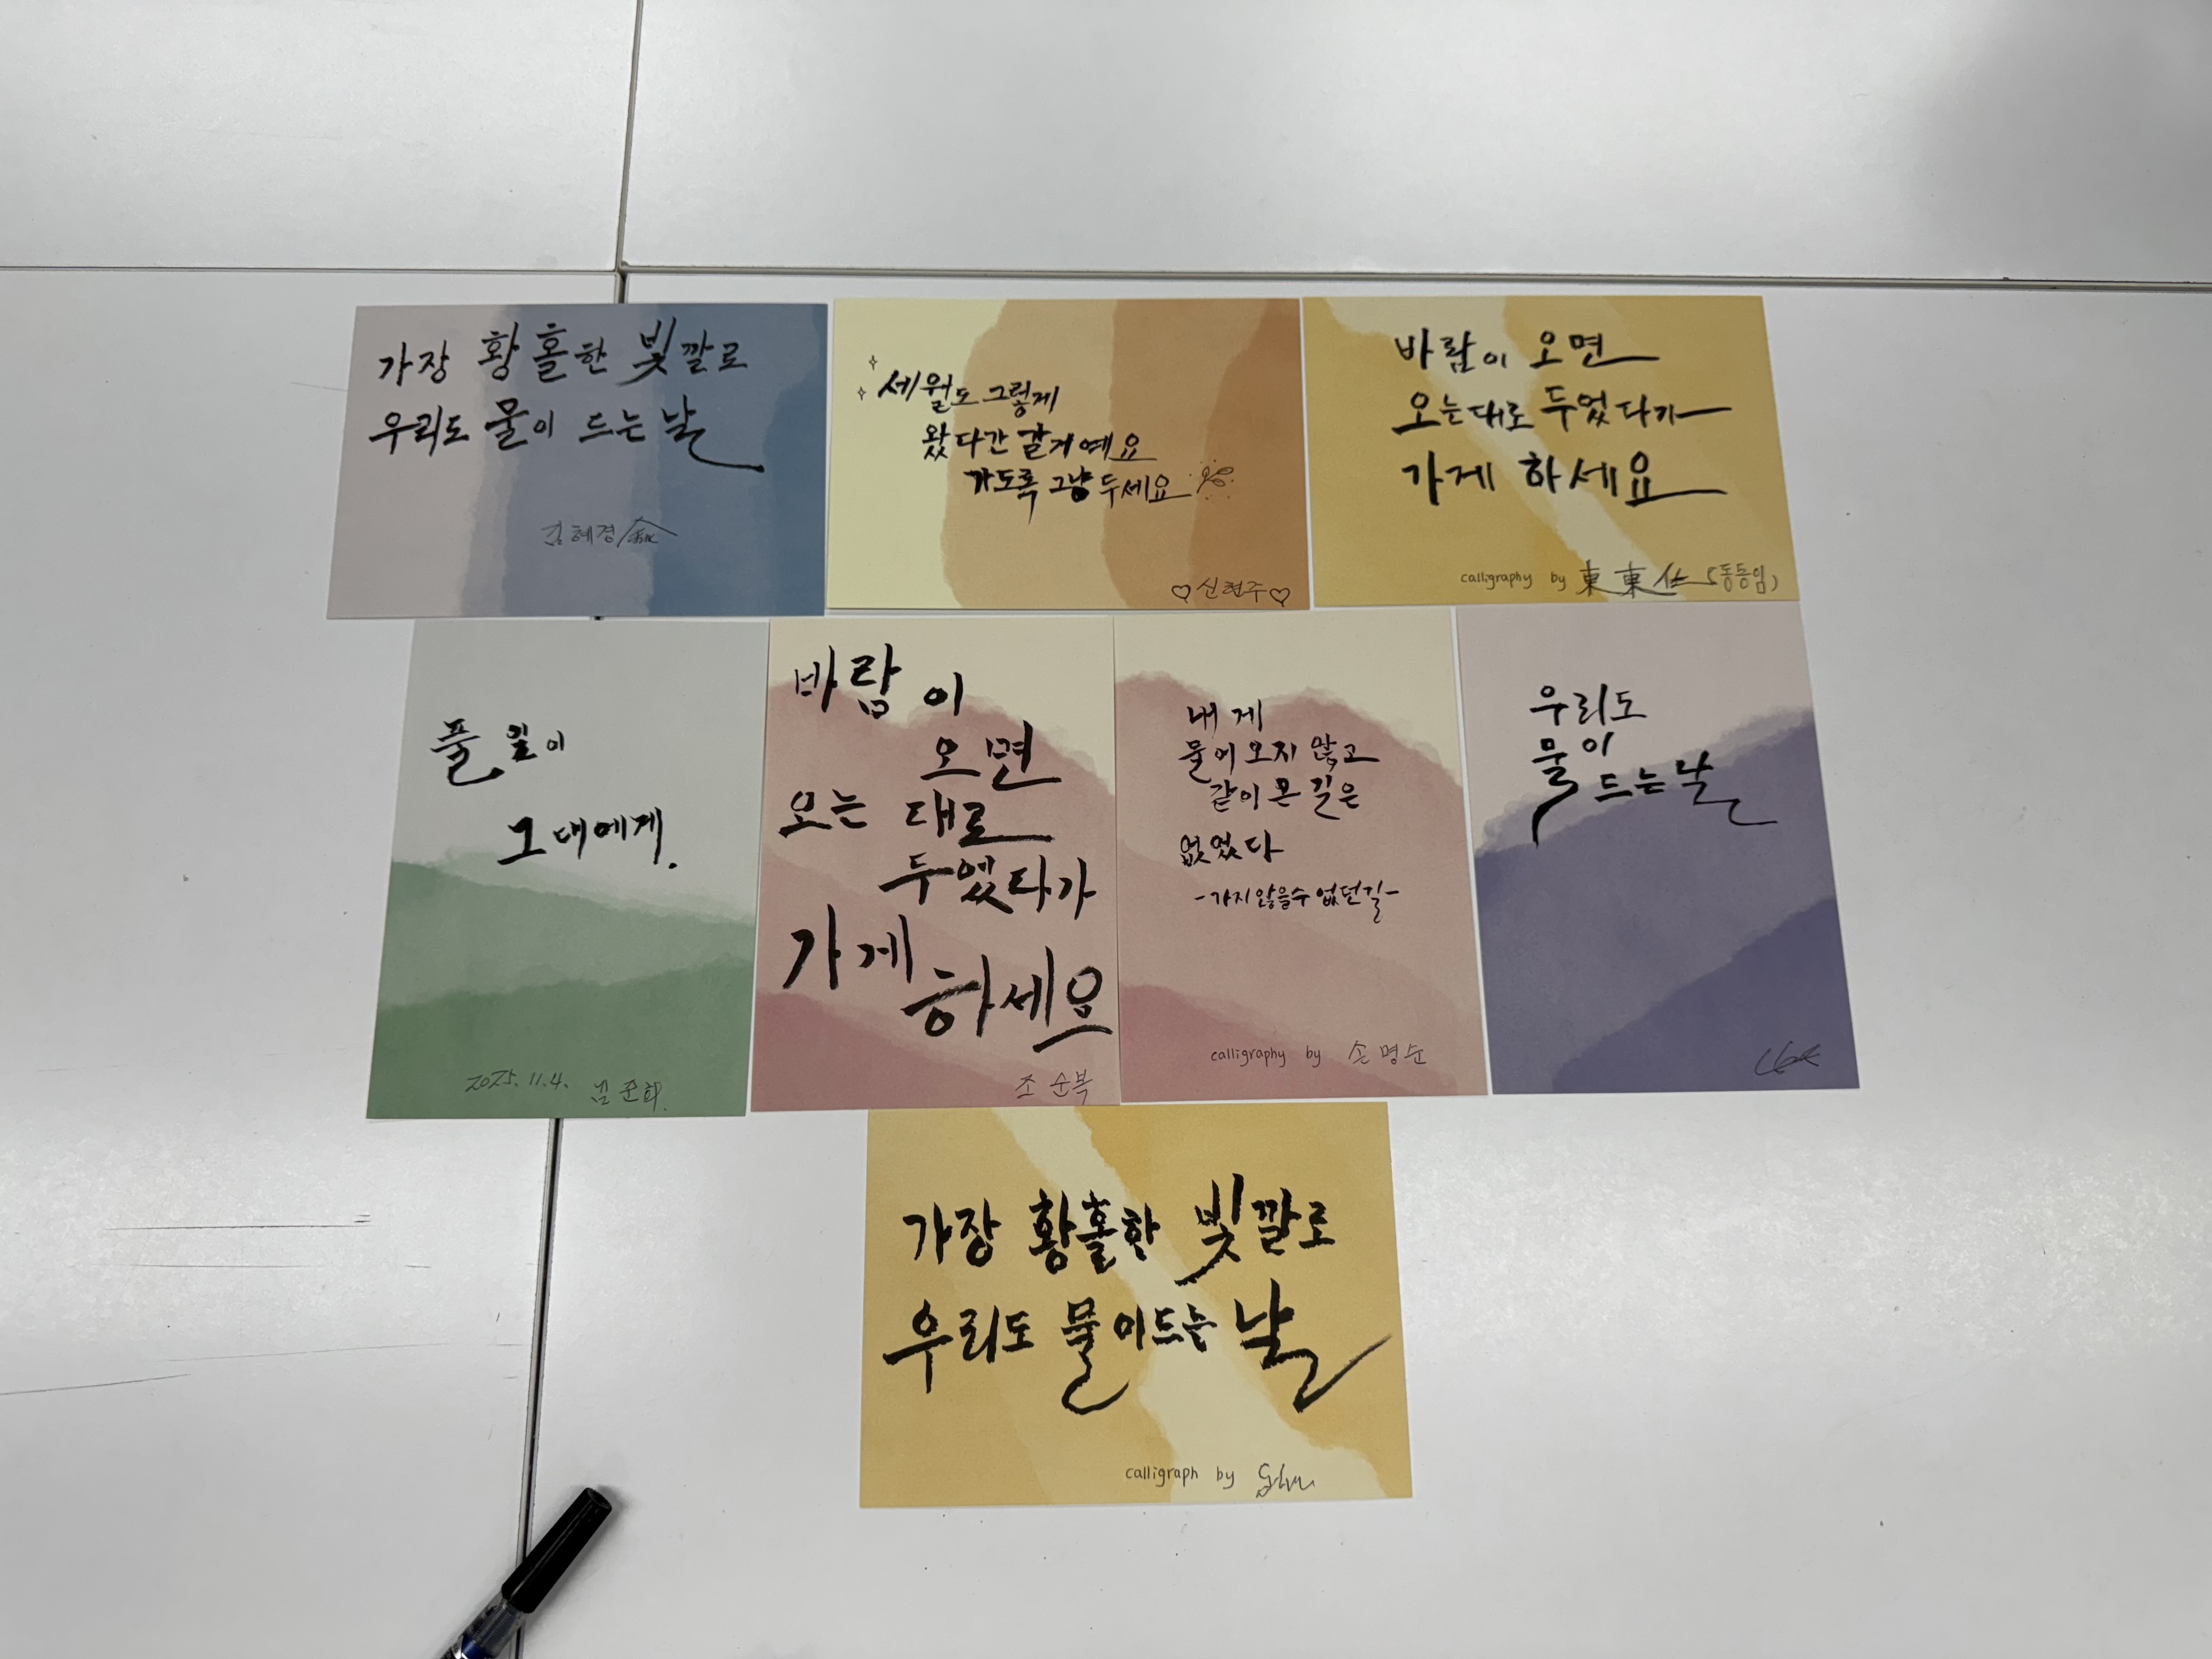 가장 황홀한 빛깔로
우리도 물이 드는 날
김혜경
세월도 그렇게
왔다간 갈게예요
가도록 그냥 두세요
♡신현주♡
바람이 오면
오는대로 두었다가
가게 하세요
calligraphy by 東東任 (동동임)
풀잎이
그대에게.
2025. 11. 4.
바람이
오면
오는 대로
두었다가
가게
하세요
조순복
내게
물어오지 않고
같이 온 길은
없었다
-가지 않을수 없던길-
calligraphy by 손명순
우리도
물이
드는 날
가장 황홀한 빛깔로
우리도 물이드는 날
calligraph by